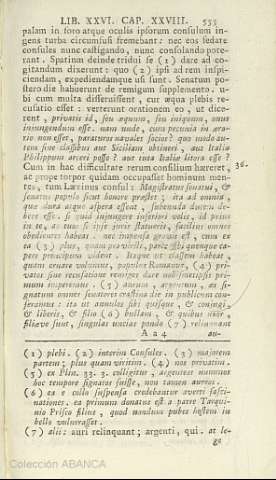 LIB. XXVI. CAP. XXVIII. 555
palam in foro atque oculis ipsorum consulum in-
gens turba circumfusi fremebant: nec eos sedare
consules nunc castigando, nunc consolando pote-
rant. Spatium deinde tridui se (1) dare ad co-
gitandum dixerunt: quo (2) ipsi ad rem inspi-
ciendam, expediendamque usi sunt. Senatum po-
stero die habuerunt de remigum supplemento. u-
bi cum multa disseruissent, cur æqua plebis re-
cusatio esset: verterunt orationem eo, ut dice-
rent, privatis id, seu æquum, seu iniquum, onus
injungendum esse. nam unde, cum pecunia in æra-
rio non esset, paraturos navales socios? quo modo au-
tem sine classibus aut Siciliam obtineri, aut Italia
Philippum arceri posse? aut tuta Italiæ litora esse?
Cum in hac difficultate rerum consilium hæreret, 36.
ac prope torpor quidam occupasset hominum men-
tes, tum Lævinus consul: Magistratus senatui, &
senatus populo sicut honore præstet; ita ad omnia,
quæ dura atque aspera essent, subeunda ducem de-
bere esse. si quid injungere inferiori velis, id prius
in te, ac tuos si ipse juris statueris, facilius omnes
obedientes habeas. nec impensa gravis est, cum ex
ea (3) plus, quam pro virili, parte sibi quemque ca-
pere principum vident. Itaque ut classem habeat,
quam ornare volumus, populus Romanus, (4) pri-
vatos sine recusatione remiges dare nobismetipsis pri-
mum imperemus. (5) aurum, argentum, æs si-
gnatum omne senatores crastino die in publicum con-
feramus: ita ut annulos sibi quisque, & conjugi,
& liberis, & filio (6) bullam, & quibus uxor
filiæve sunt, singulas uncias pondo (7) relinquant
A a 4 au-
(1) plebi. (2) interim Consules. (3) majorem
partem; plus quam viritim. (4) nos privatim.
(5) ex Plin. 33. 3. colligitur, argenteos nummos
hoc tempore signatos fuisse, non tamen aureos.
(6) ea e collo suspensa credebantur averti fasci-
nationes. ea primum donatus est a patre Tarqui-
nio Prisco filius, quod nondum pubes hostem in
bello vulnerasset.
(7) alii: auri relinquant; argenti, qui. at le-
ge
Colección ABANCA